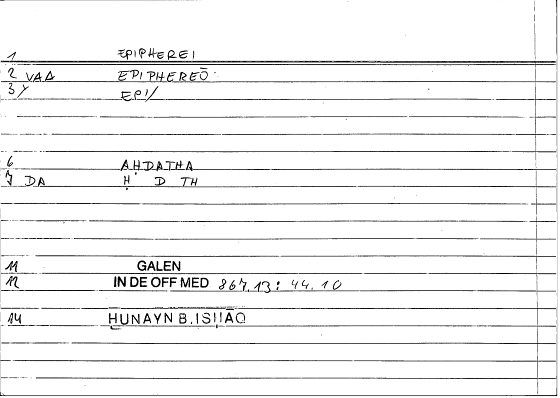 1 EPIPHEREI
2 VAA EPIPHEREŌ
3 Y EPI/
6 AḤDATHA
7 DA Ḥ D TH
11 GALEN
12 IN DE OFF MED 867.13: 44.10
14 ḤUNAYN B.ISḤĀQ